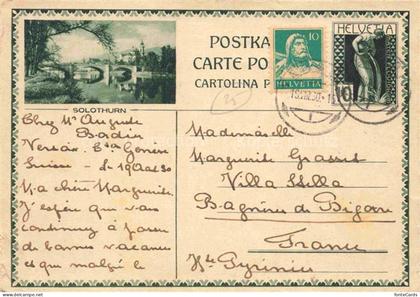 POSTKA
CARTE PO
CARTOLINA P
SOLOTHURN
10
HELVETIA
HELVETIA
10
Chez Mr Auguste
Bodin
Versoix. Cton Genève
Suisse - 19 Aout 30
Ma chère Marguerite,
J'espère que vous
continuez à passer
de bonnes vacances
et que malgré le
Mademoiselle
Marguerite Grasset
Villa Stella
Bagnères de Bigorre
France
Htes Pyrénées